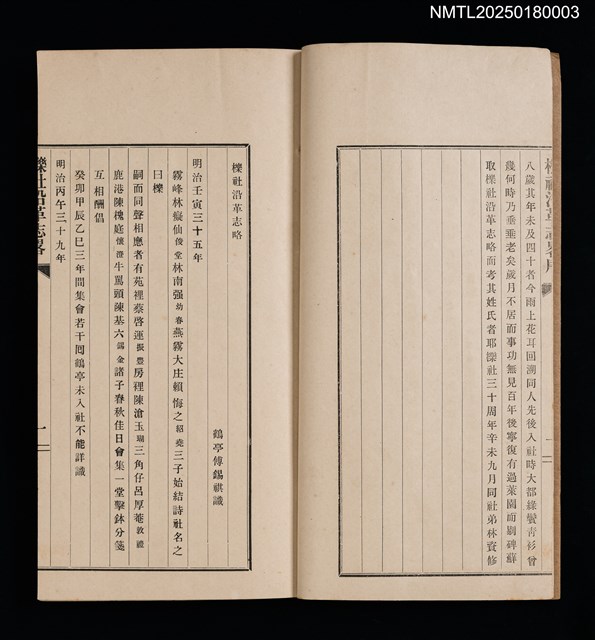 NMTL20250180003
八歲其年未及四十者今雨上花耳回溯同人先後入社時大都綠鬢靑衫曾
幾何時乃垂垂老矣歲月不居而事功無見百年後寧復有過萊園而剔碑蘚
取櫟社沿革志略而考其姓氏者耶櫟社三十周年辛未九月同社弟林資修
櫟社沿革志略
鶴亭傅錫祺識
明治壬寅三十五年
霧峰林癡仙俊堂林南强幼春燕霧大庄賴悔之紹堯三子始結詩社名之
曰櫟
嗣而同聲相應者有苑裡蔡啓運振豐房裡陳滄玉瑚三角仔呂厚菴敦禮
鹿港陳槐庭懷澄牛罵頭陳基六錫金諸子春秋佳日會集一堂擊鉢分箋
互相酬倡
癸卯甲辰乙巳三年間集會若干囘鶴亭未入社不能詳識
明治丙午三十九年
櫟社沿革志畧
一